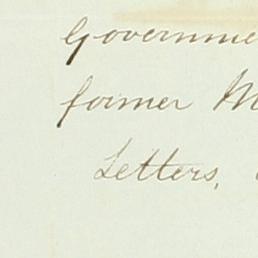 Governme
former M
Letters,